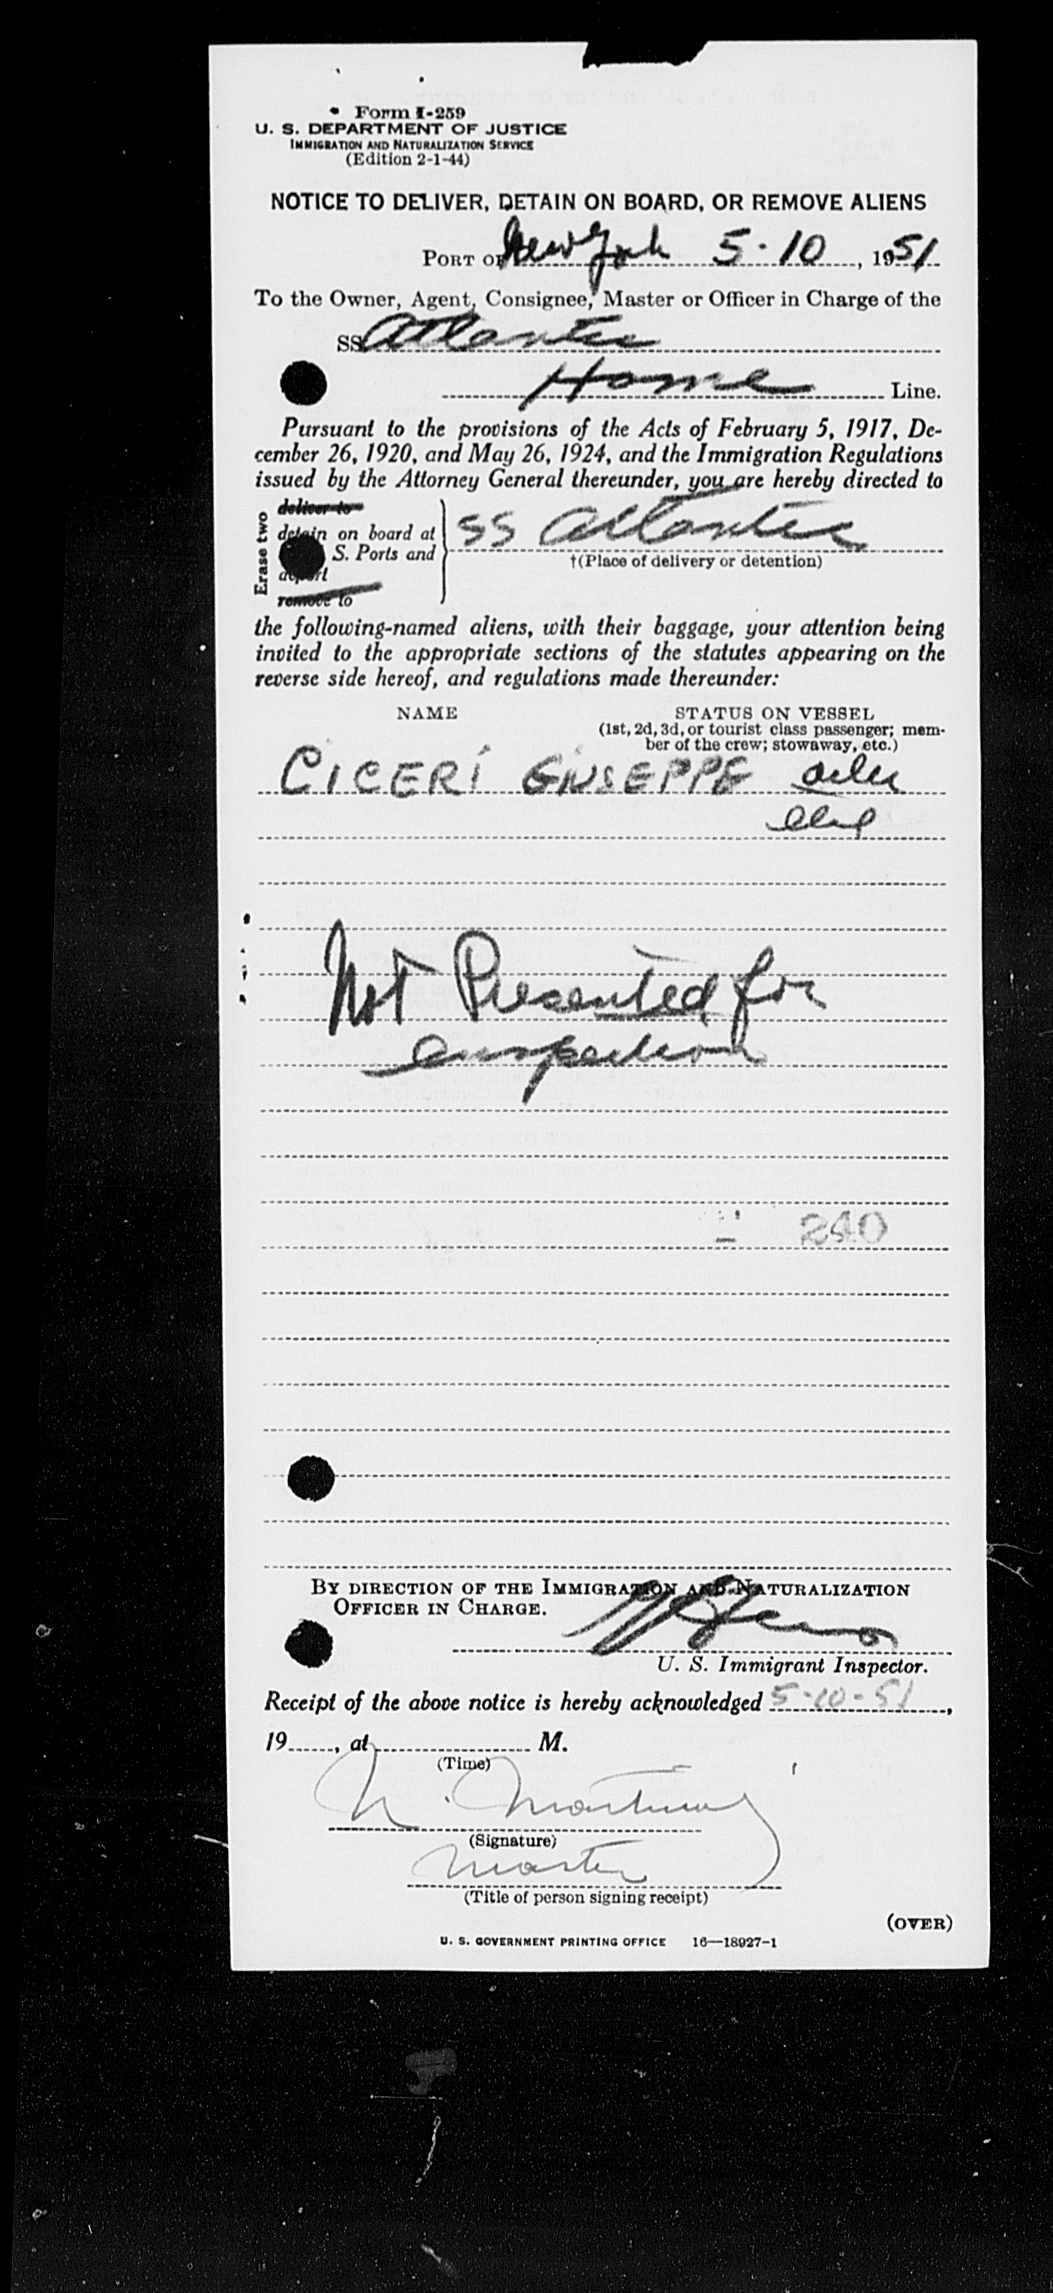 Form I-259
U. S. DEPARTMENT OF JUSTICE
IMMIGRATION AND NATURALIZATION SERVICE
(Edition 2-1-44)
NOTICE TO DELIVER, DETAIN ON BOARD, OR REMOVE ALIENS
PORT OF New York 5-10, 1951
To the Owner, Agent, Consignee, Master or Officer in Charge of the
SS Atlantic
Home Line.
Pursuant to the provisions of the Acts of February 5, 1917, De-
cember 26, 1920, and May 26, 1924, and the Immigration Regulations
issued by the Attorney General thereunder, you are hereby directed to
Erase two
deliver to
detain on board at
S. Ports and
deport
remove to
SS Atlantic
†(Place of delivery or detention)
the following-named aliens, with their baggage, your attention being
invited to the appropriate sections of the statutes appearing on the
reverse side hereof, and regulations made thereunder:
NAME STATUS ON VESSEL
(1st, 2d, 3d, or tourist class passenger; mem-
ber of the crew; stowaway, etc.)
CICERI GIUSEPPE
Not Presented for
inspection
240
BY DIRECTION OF THE IMMIGRATION AND NATURALIZATION
OFFICER IN CHARGE.
U. S. Immigrant Inspector.
Receipt of the above notice is hereby acknowledged 5-10-51,
19......, at .................... M.
(Time)
(Signature)
Master
(Title of person signing receipt)
(OVER)
U. S. GOVERNMENT PRINTING OFFICE 16—18927-1